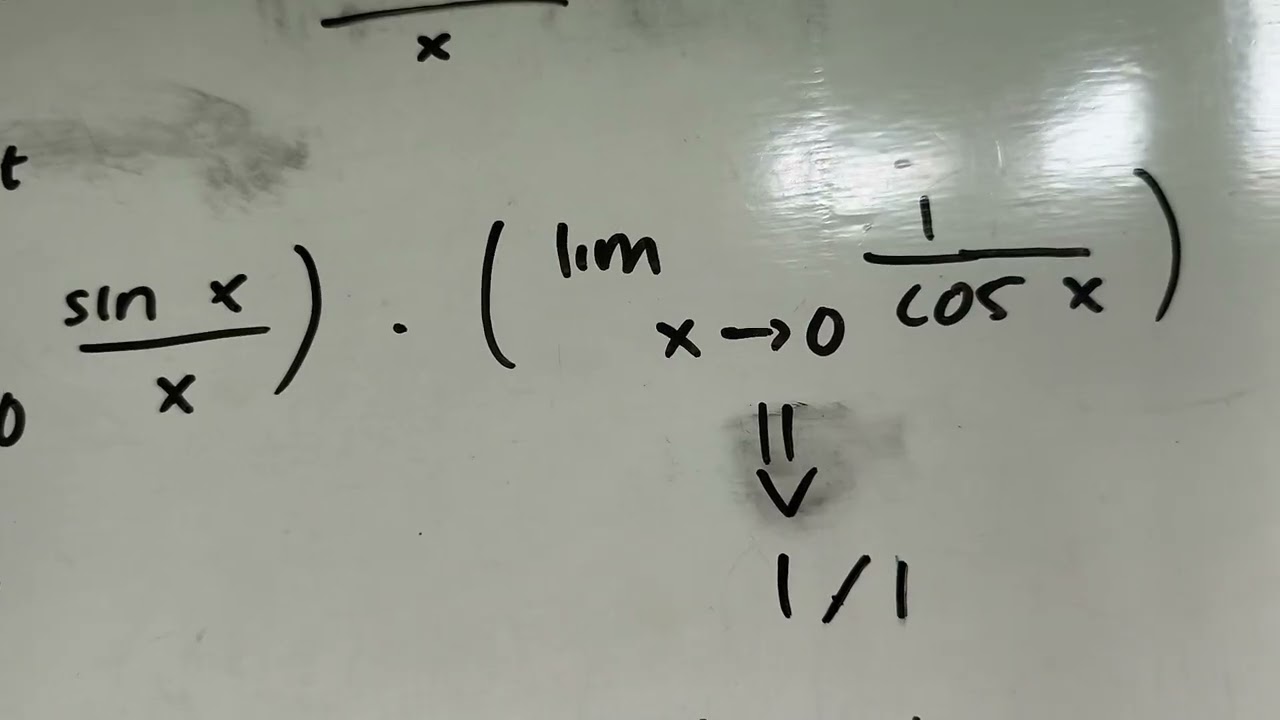 x
t
sin x / x ) · ( lim x → 0 1 / cos x )
0
⇓
1 / 1